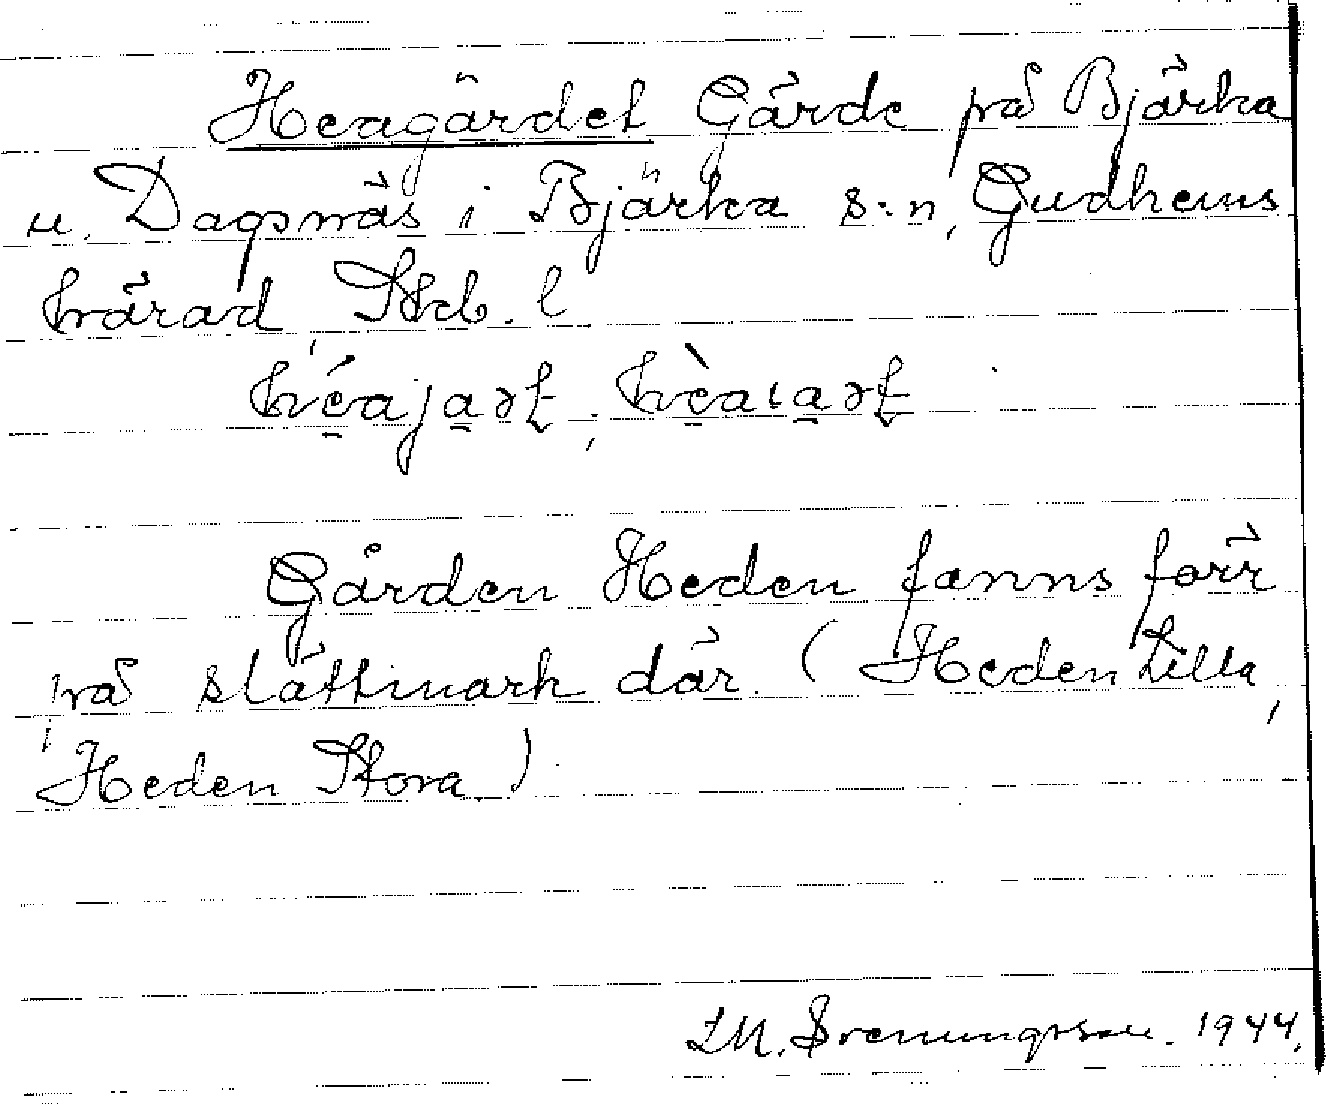 Heagärdet Gärde på Bjärka
u. Dagsnäs i Bjärka s:n, Gudhems
härad Skb. l
Gården Heden fanns förr
på slättmark där. (Heden Lilla,
Heden Stora.)
M. Svenungsson. 1944.